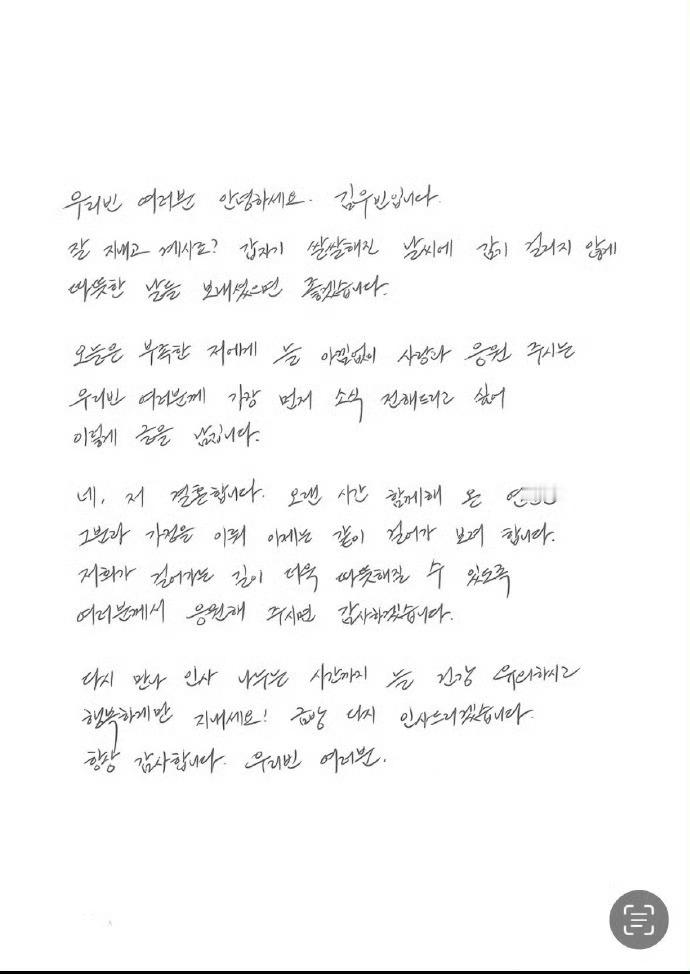 우리빈 여러분 안녕하세요. 김우빈입니다.
잘 지내고 계시죠? 갑자기 쌀쌀해진 날씨에 감기 걸리지 않게
따뜻한 날들 보내셨으면 좋겠습니다.
오늘은 부족한 저에게 늘 아낌없이 사랑과 응원 주시는
우리빈 여러분께 가장 먼저 소식 전해드리고 싶어
이렇게 글을 남깁니다.
네, 저 결혼합니다. 오랜 시간 함께해 온
그분과 가정을 이뤄 이제는 같이 걸어가 보려 합니다.
저희가 걸어가는 길이 더욱 따뜻해질 수 있도록
여러분께서 응원해 주시면 감사하겠습니다.
다시 만나 인사 나누는 시간까지 늘 건강 유의하시고
행복하게만 지내세요! 금방 다시 인사드리겠습니다.
항상 감사합니다. 우리빈 여러분.